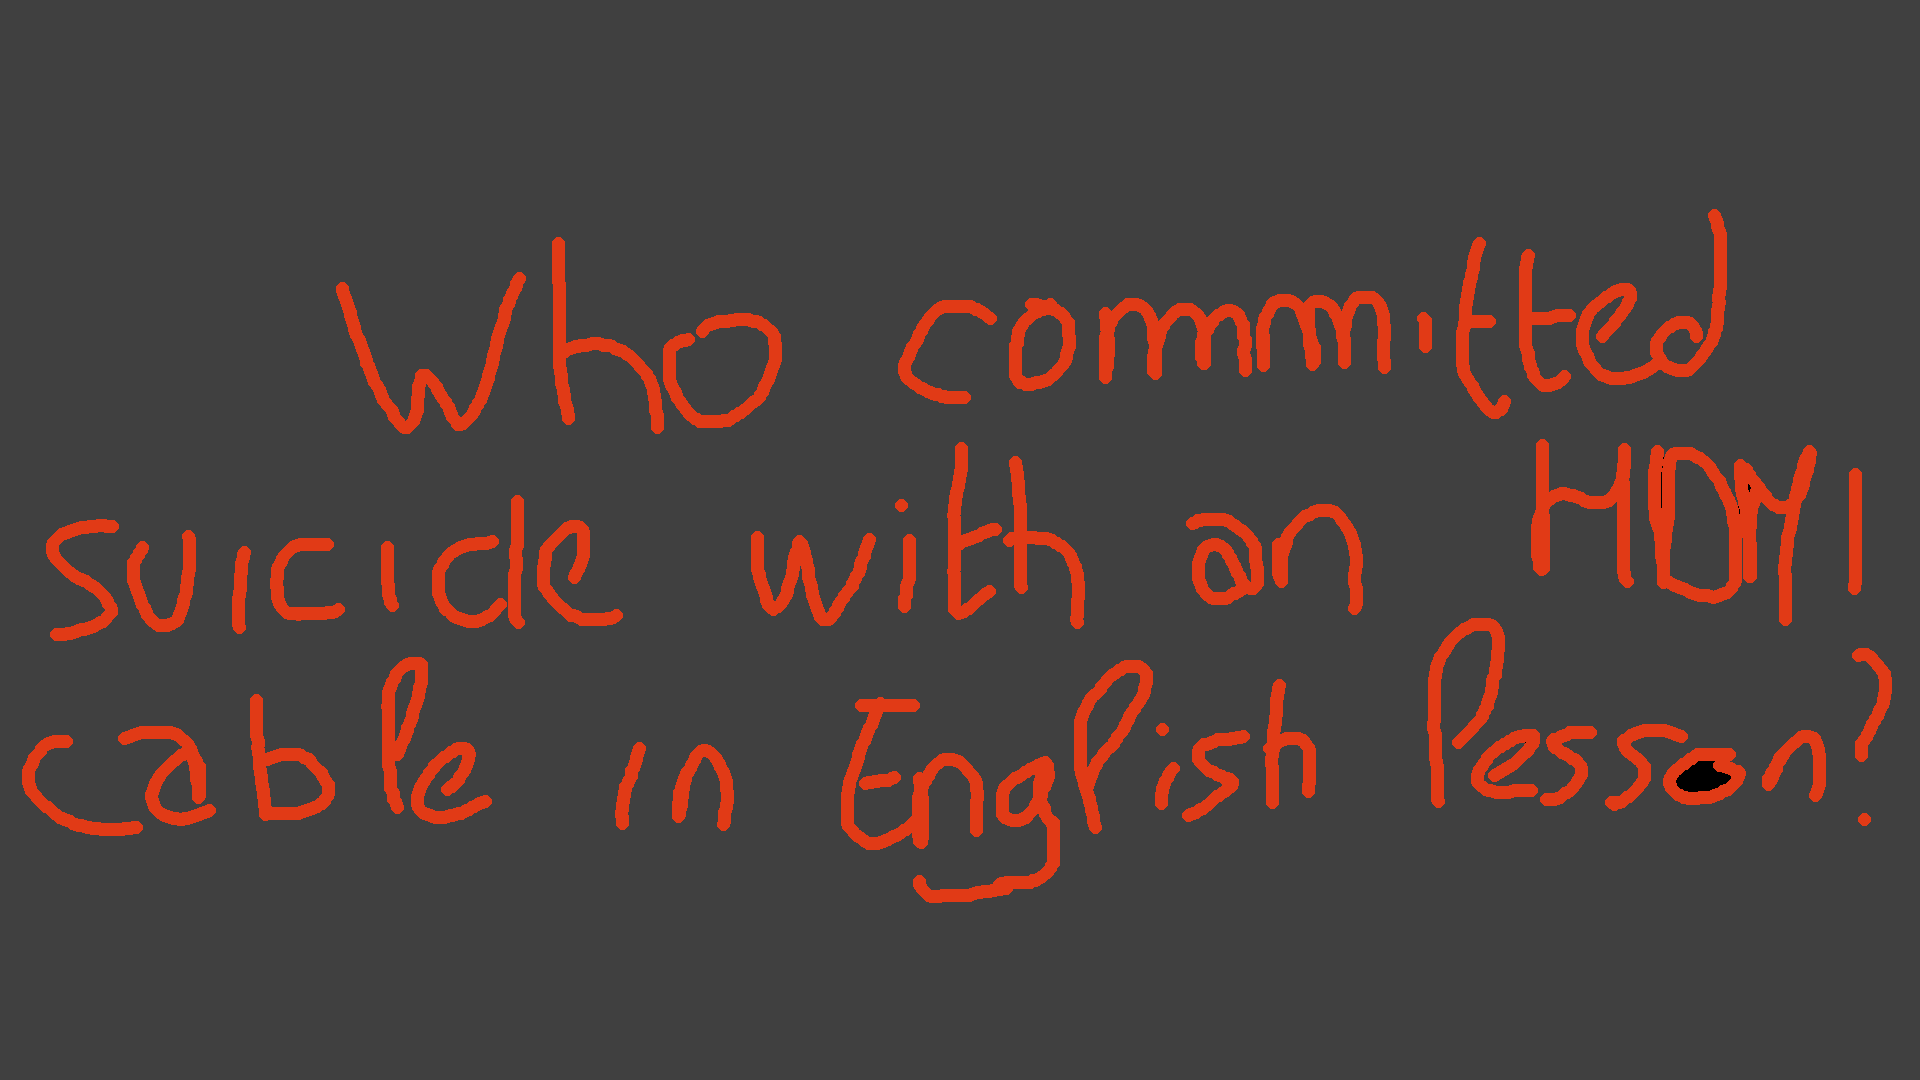 Who committed
suicide with an HDMI
cable in English lesson?